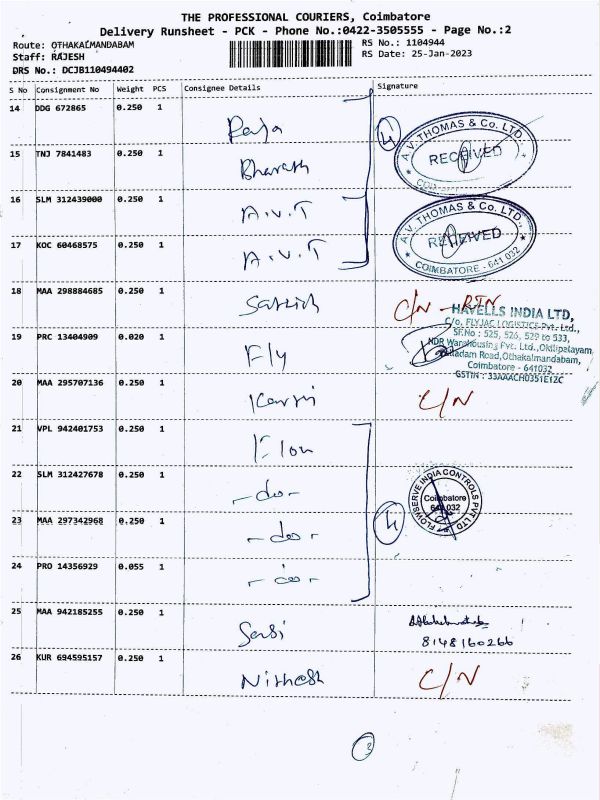 THE PROFESSIONAL COURIERS, Coimbatore
Delivery Runsheet - PCK - Phone No.:0422-3505555 - Page No.:2
Route: OTHAKALMANDABAM
RS No.: 1104944
Staff: RAJESH
RS Date: 25-Jan-2023
DRS No.: DCJB110494402
S No Consignment No Weight PCS Consignee Details Signature
14 DDG 672865 0.250 1 Raja
4
A.V. THOMAS & Co. LTD.
RECEIVED
15 TNJ 7841483 0.250 1 Bharath
16 SLM 312439000 0.250 1 A.V.T
A.V. THOMAS & Co. LTD.,
RECEIVED
COIMBATORE - 641 032
17 KOC 60468575 0.250 1 A.V.T
18 MAA 298884685 0.250 1 C/N - RTN
HAVELLS INDIA LTD,
C/o. FLYJAC LOGISTICS Pvt. Ltd.,
SF.No : 525, 526, 529 to 533,
NDR Warehousing Pvt. Ltd.,Okilipalayam,
Palladam Road,Othakalmandabam,
Coimbatore - 641032
GSTIN : 33AAACH0351E1ZC
19 PRC 13404909 0.020 1 Fly
20 MAA 295707136 0.250 1 C/N
21 VPL 942401753 0.250 1 Flow
22 SLM 312427678 0.250 1 - do -
FLOWSERVE INDIA CONTROLS PVT LTD
Coimbatore
641 032
23 MAA 297342968 0.250 1 - do -
4
24 PRO 14356929 0.055 1 - do -
25 MAA 942185255 0.250 1 Sasi
8148160266
26 KUR 694595157 0.250 1 Nithesh C/N
2